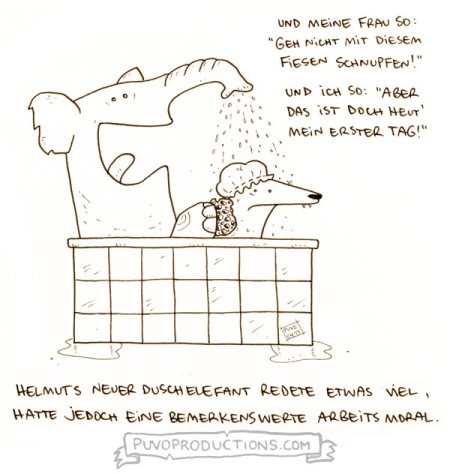 UND MEINE FRAU SO:
"GEH NICHT MIT DIESEM
FIESEN SCHNUPFEN!"
UND ICH SO: "ABER
DAS IST DOCH HEUT'
MEIN ERSTER TAG!"
HELMUTS NEUER DUSCHELEFANT REDETE ETWAS VIEL,
HATTE JEDOCH EINE BEMERKENSWERTE ARBEITSMORAL.
PUVOPRODUCTIONS.COM